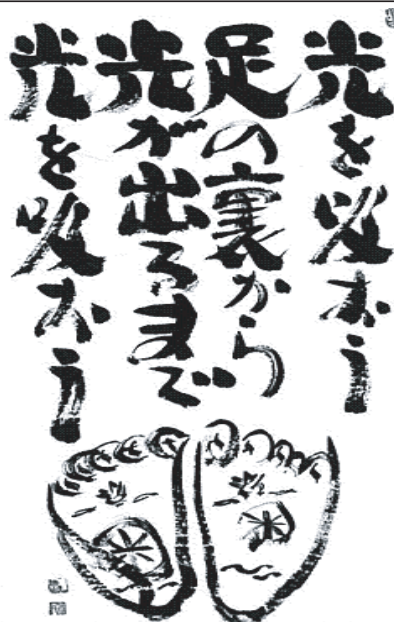 光を吸おう
足の裏から
光が出るまで
光を吸おう